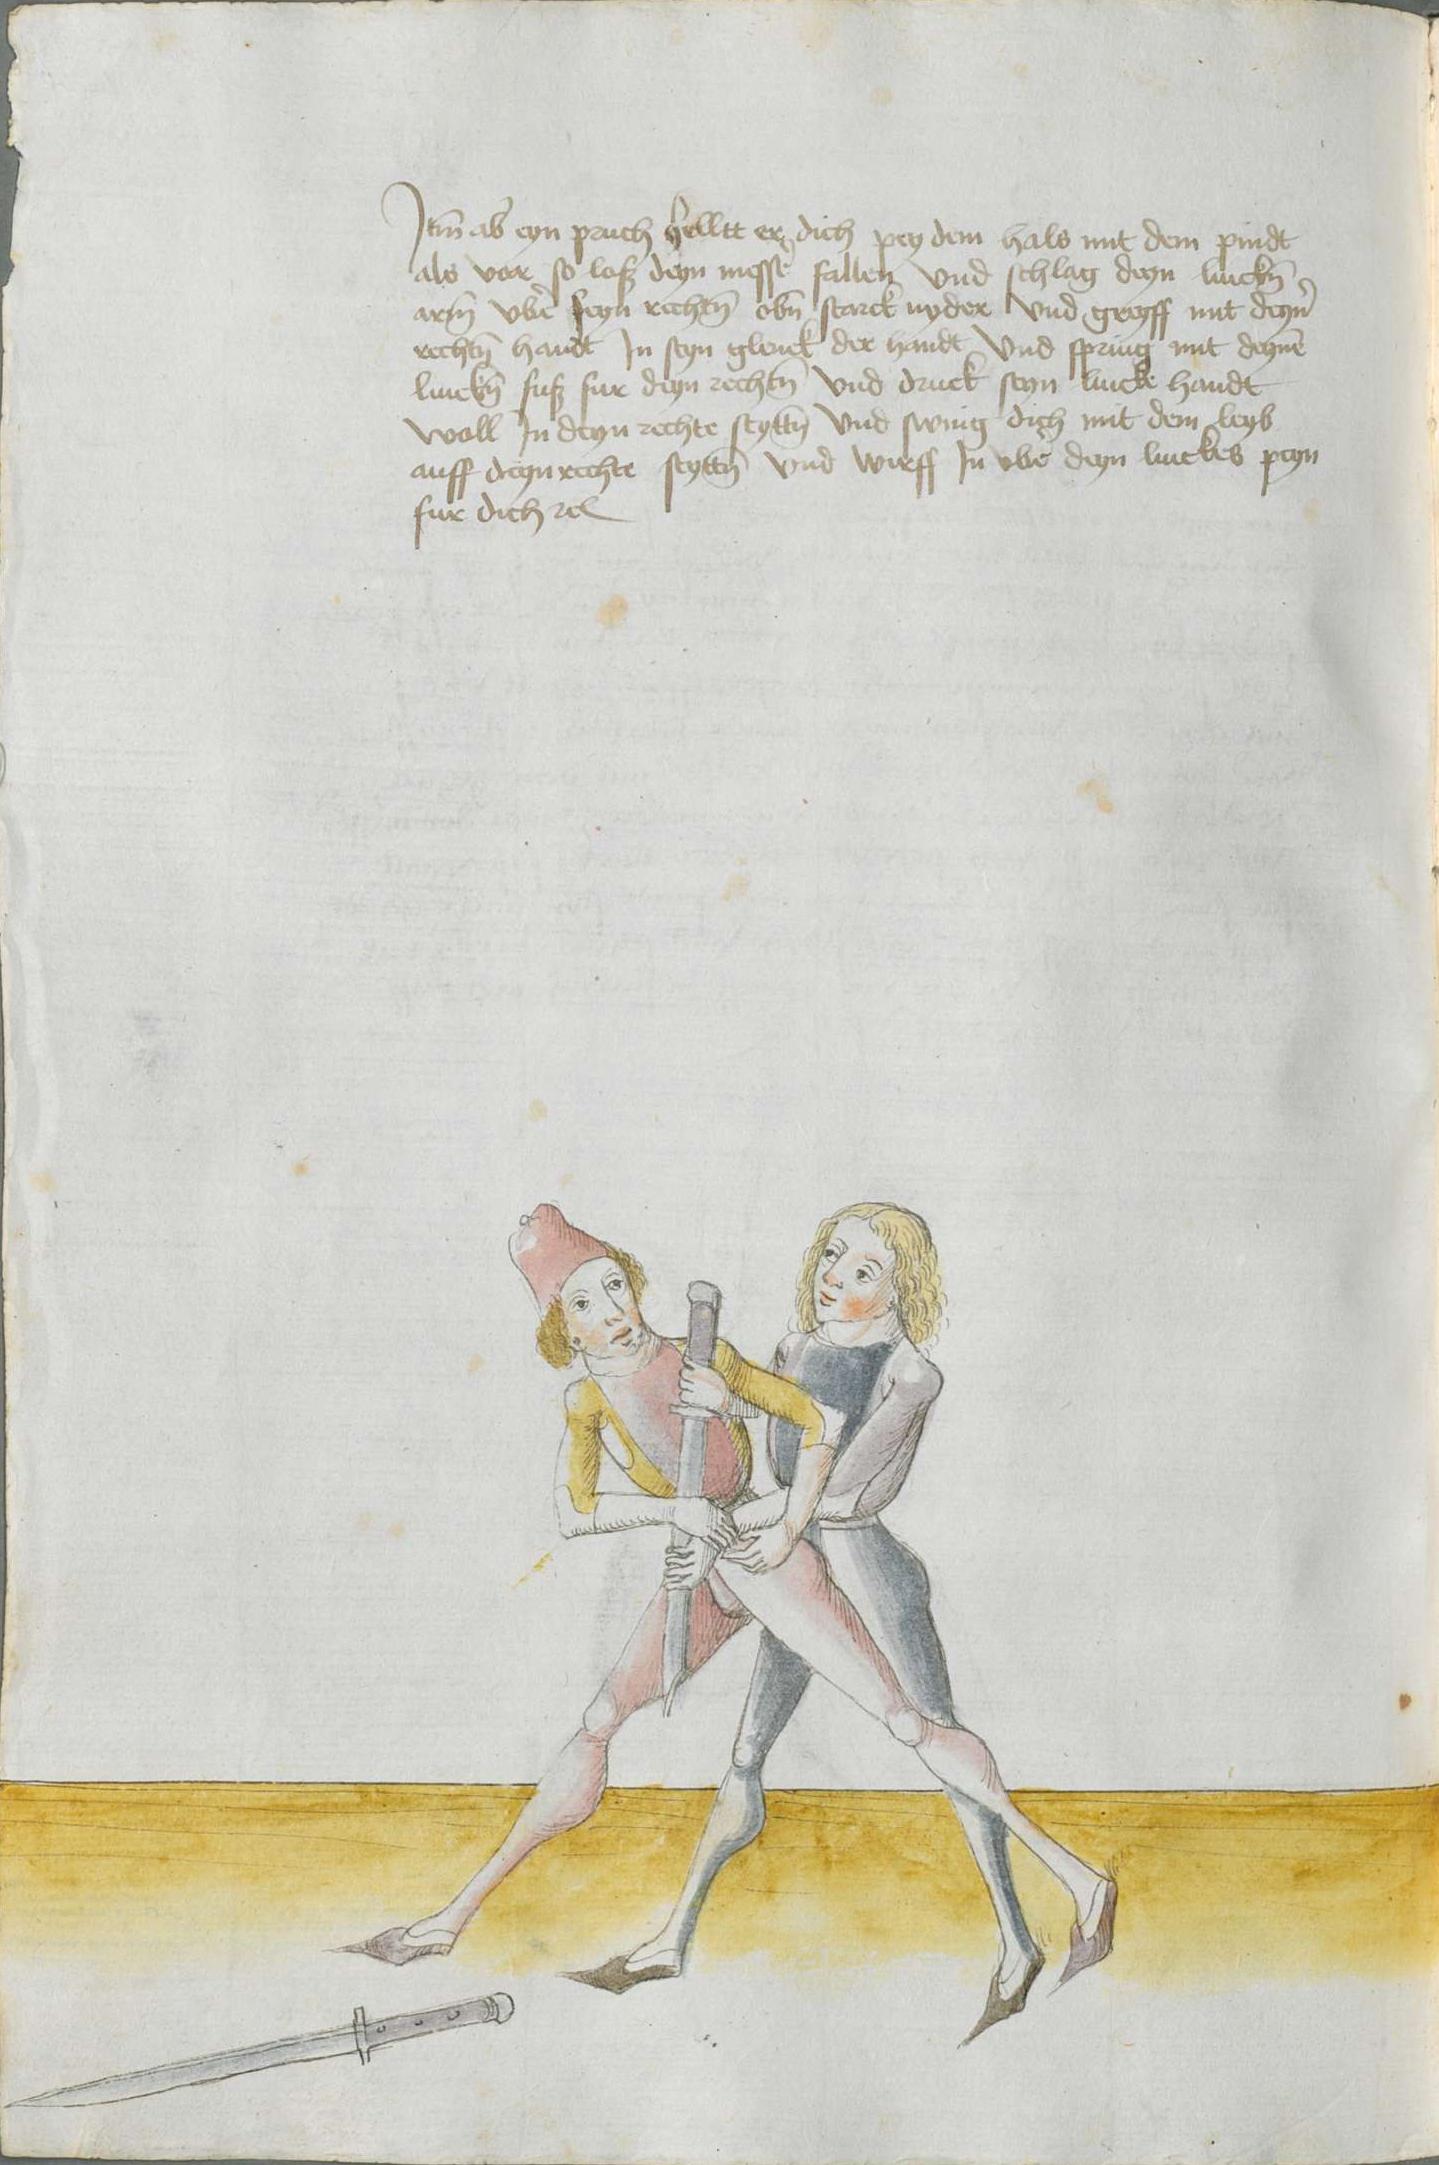 Itm̄ ab̕ eyn pruch helltt er dich pey dem hals mit dem pindt
als vor so loß deyn messe̕ fallen vnd schlag deyn linckn̄
arm̄ vbe̕ seyn rechtn̄ obn̄ starck nyder vnd greyff mit deyn̕
rechtn̄ handt In seyn glenck der handt vnd spring mit deynē
linckn̄ fuß fur deyn rechtn̄ vnd druck seyn lincke handt
woll In deyn rechte seyttn̄ vnd swing dich mit dem leyb
auff deyn rechte seyttn̄ vnd wirff In vbe̕ deyn linckes peyn
fur dich ꝛc